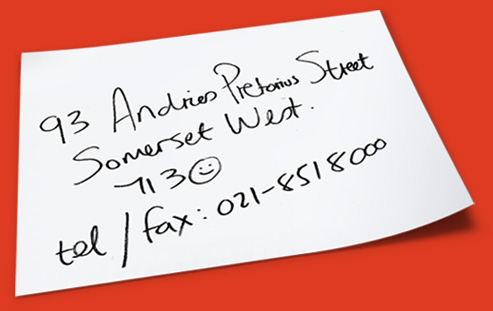 93 Andries Pretorius Street
Somerset West.
713☺
tel/fax: 021-8518000